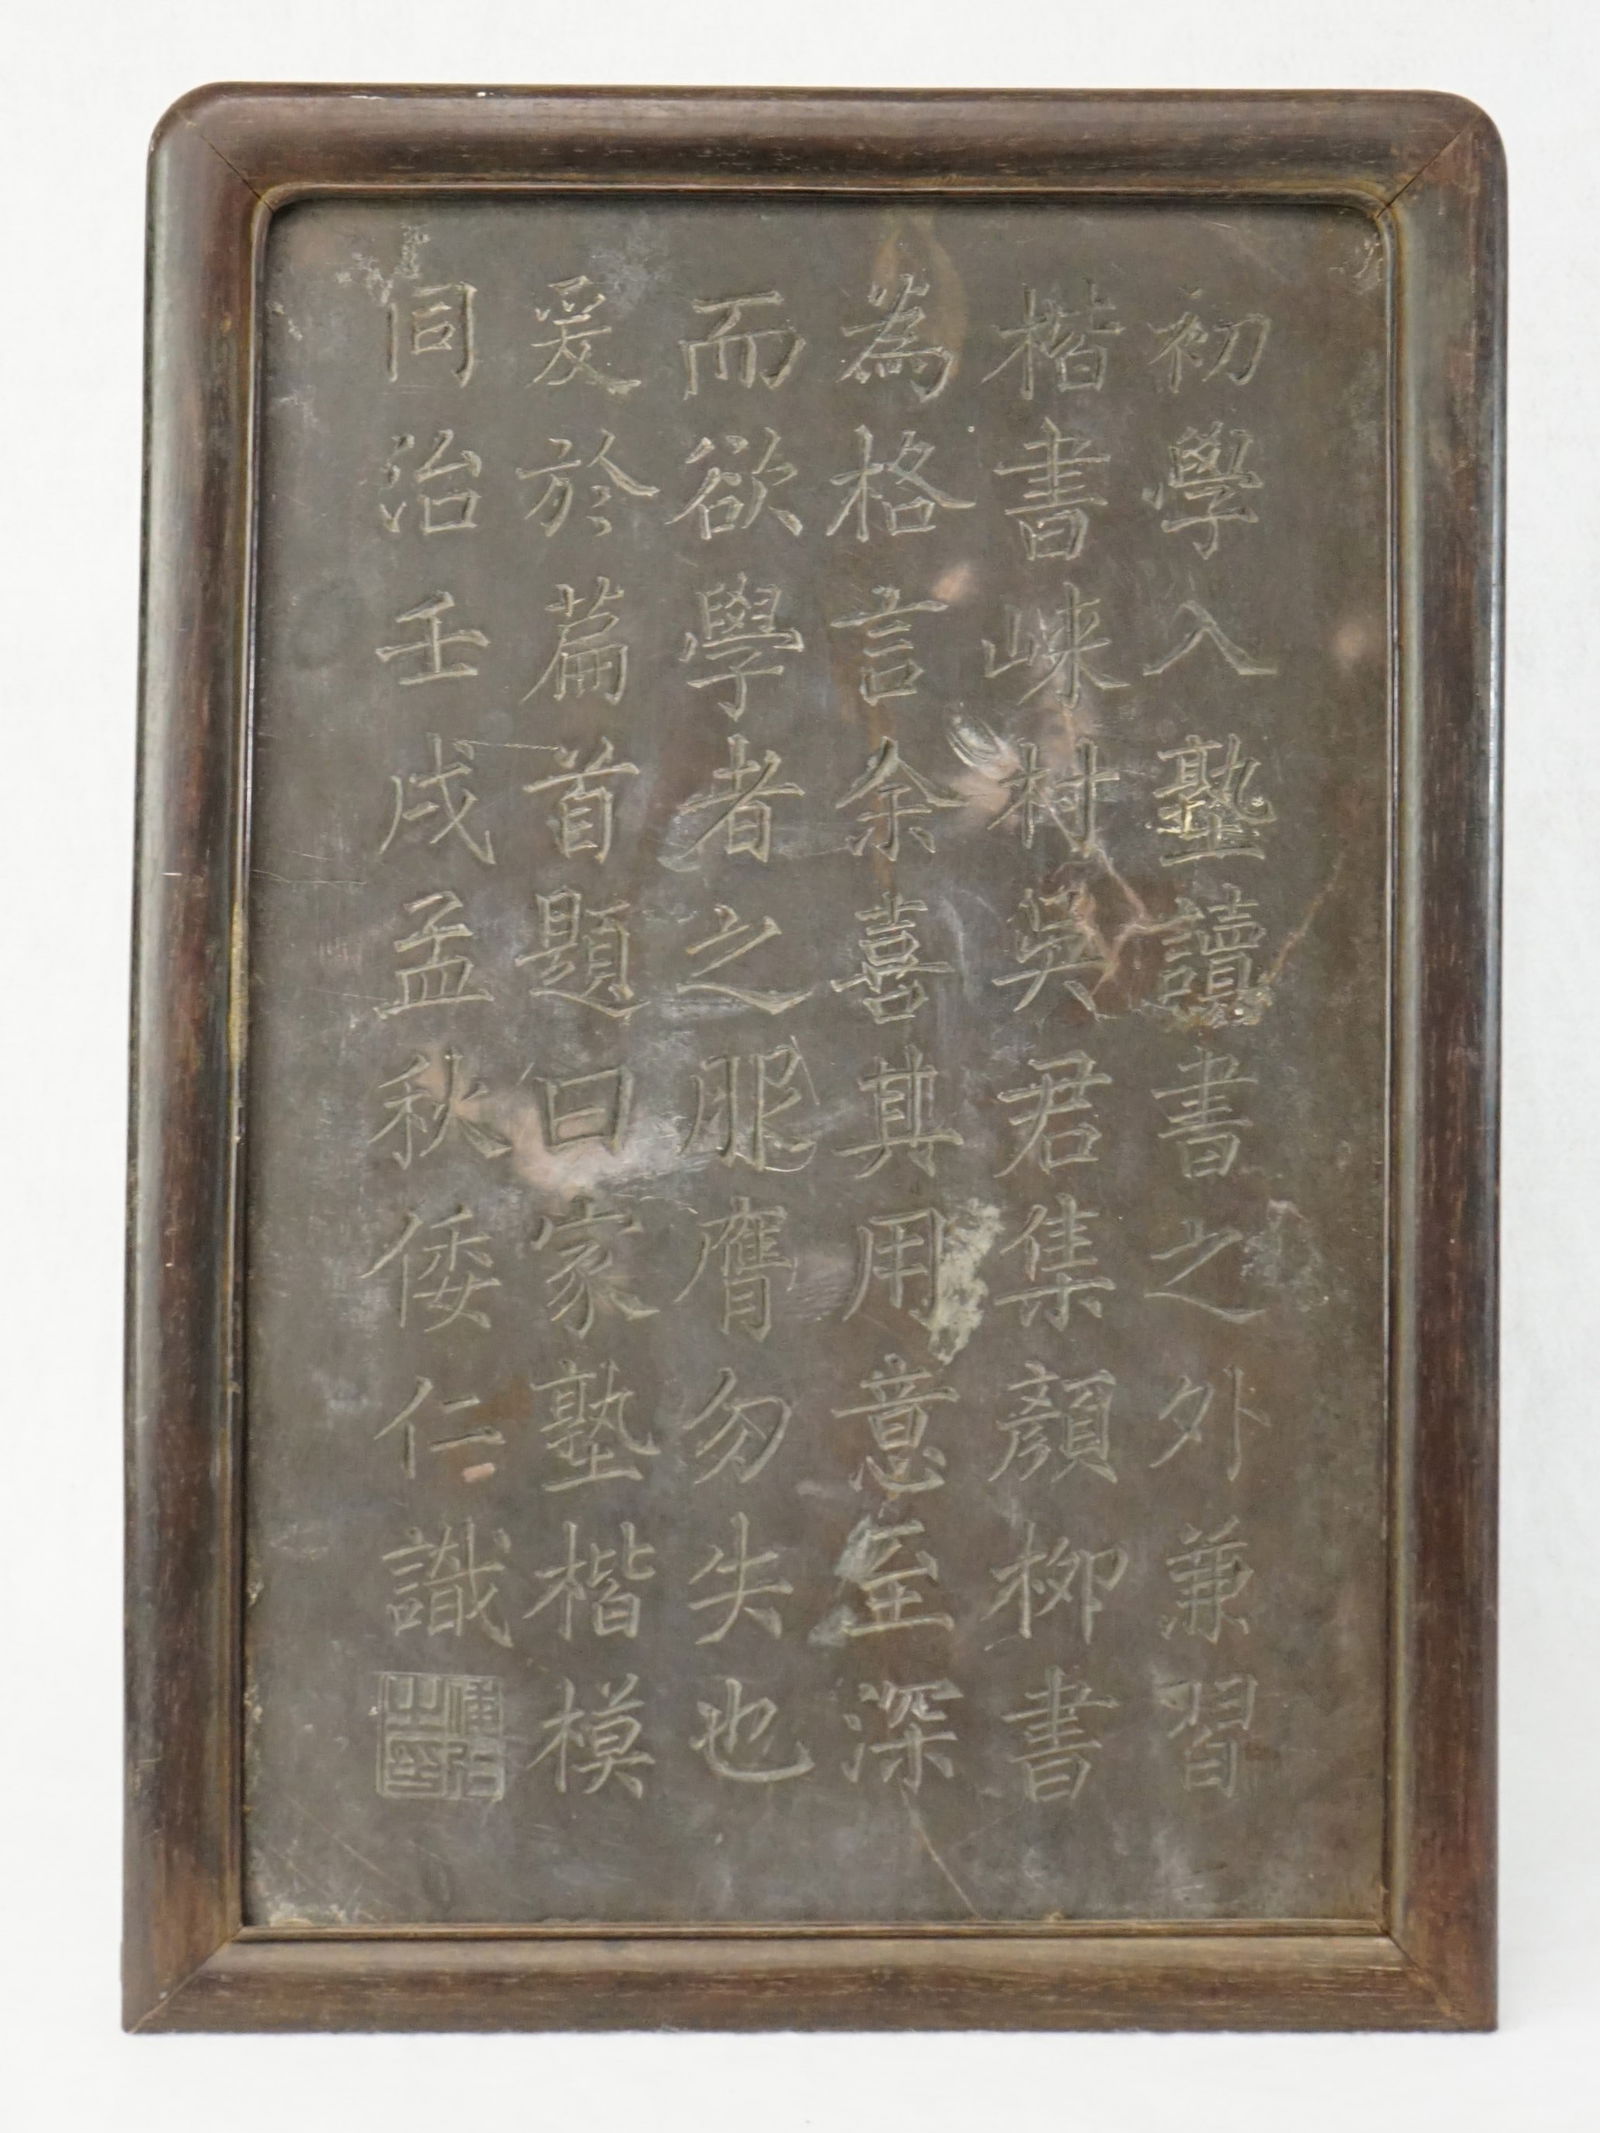 初學入塾讀書之外兼習
楷書崍村吳君集顏柳書
為格言余喜其用意至深
而欲學者之服膺勿失也
爰於篇首題曰家塾楷模
同治壬戌孟秋倭仁識
倭仁之印